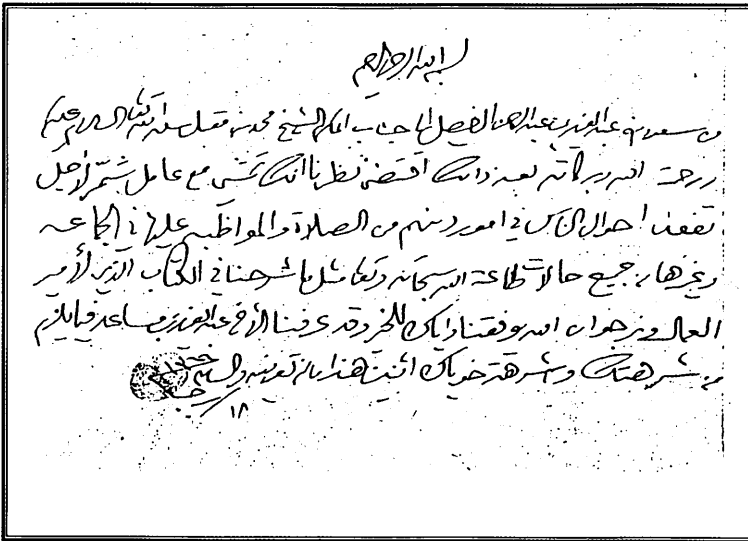 بسم الله الرحمن الرحيم
من سعود بن عبد العزيز بن عبد الرحمن الفيصل إلى جناب المكرم الشيخ محمد بن مقبل سلمه الله تعالى السلام عليكم
ورحمة الله وبركاته بعد ذلك اقتضى نظرنا انك تمشي مع عامل شمر لأجل
تفقد احوال الناس في امور دينهم من الصلاة والمواظبه عليها في الجماعه
وغيرها من جميع حالات طاعة الله سبحانه وتعالى مثل ما شرحنا في الكتاب الذي لأمير
العمال ونرجو ان الله يوفقنا واياك للخير وقد عرفنا الأخ عبد العزيز بن مساعد فيما يلزم
من شرهتك وشرهة خوياك انت هذا ما لزم تعريفه والسلام
١٨